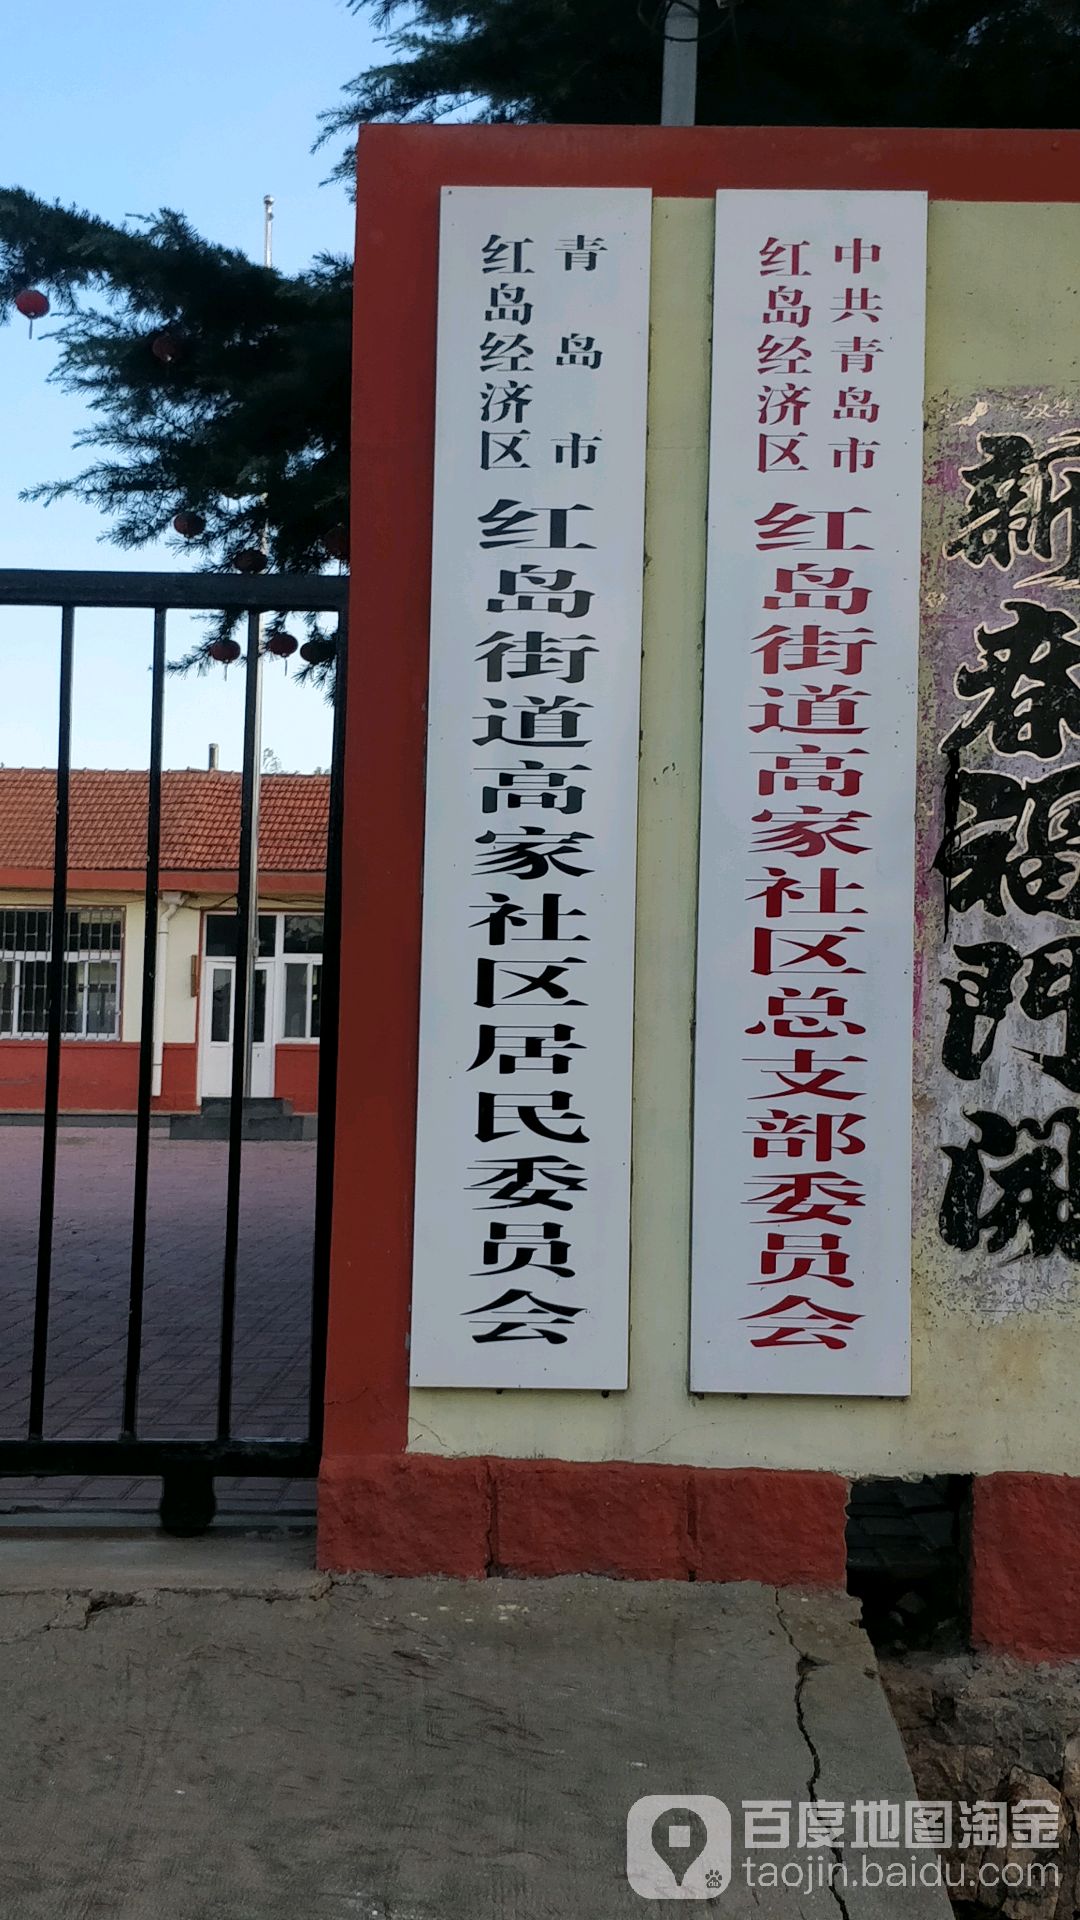 青岛市
红岛经济区
红岛街道高家社区居民委员会
中共青岛市
红岛经济区
红岛街道高家社区总支部委员会
新春福門開
百度地图淘金
taojin.baidu.com